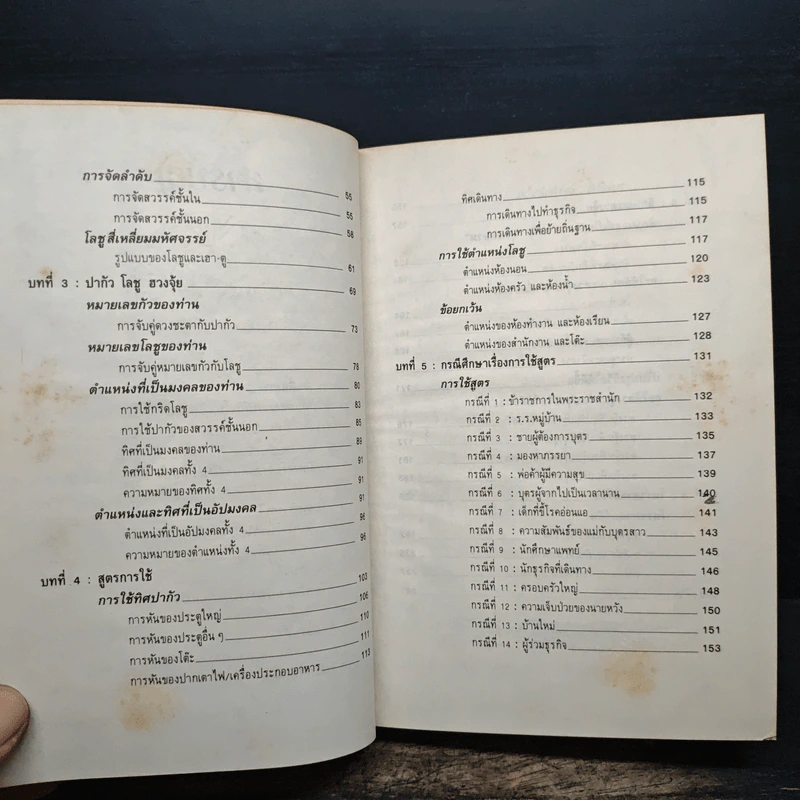 การจัดลำดับ
การจัดสวรรค์ชั้นใน 55
การจัดสวรรค์ชั้นนอก 55
โลชูสี่เหลี่ยมมหัศจรรย์ 58
รูปแบบของโลชูและเฮา-ตู 61
บทที่ 3 : ปากัว โลชู ฮวงจุ้ย 69
หมายเลขกัวของท่าน
การจับคู่ดวงชะตากับปากัว 73
หมายเลขโลชูของท่าน
การจับคู่หมายเลขกัวกับโลชู 78
ตำแหน่งที่เป็นมงคลของท่าน 80
การใช้กริดโลชู 83
การใช้ปากัวของสวรรค์ชั้นนอก 85
ทิศที่เป็นมงคลของท่าน 89
ทิศที่เป็นมงคลทั้ง 4 91
ความหมายของทิศทั้ง 4 91
ตำแหน่งและทิศที่เป็นอัปมงคล 91
ตำแหน่งที่เป็นอัปมงคลทั้ง 4 96
ความหมายของตำแหน่งทั้ง 4 96
บทที่ 4 : สูตรการใช้ 103
การใช้ทิศปากัว 106
การหันของประตูใหญ่ 110
การหันของประตูอื่น ๆ 111
การหันของโต๊ะ 113
การหันของปากเตาไฟ/เครื่องประกอบอาหาร
ทิศเดินทาง 115
การเดินทางไปทำธุรกิจ 115
การเดินทางเพื่อย้ายถิ่นฐาน 117
การใช้ตำแหน่งโลชู 117
ตำแหน่งห้องนอน 120
ตำแหน่งห้องครัว และห้องน้ำ 123
ข้อยกเว้น
ตำแหน่งของห้องทำงาน และห้องเรียน 127
ตำแหน่งของสำนักงาน และโต๊ะ 128
บทที่ 5 : กรณีศึกษาเรื่องการใช้สูตร 131
การใช้สูตร
กรณีที่ 1 : ข้าราชการในพระราชสำนัก 132
กรณีที่ 2 : ร.ร.หมู่บ้าน 133
กรณีที่ 3 : ชายผู้ต้องการบุตร 135
กรณีที่ 4 : มองหาภรรยา 137
กรณีที่ 5 : พ่อค้าผู้มีความสุข 139
กรณีที่ 6 : บุตรผู้จากไปเป็นเวลานาน 140
กรณีที่ 7 : เด็กที่ขี้โรคอ่อนแอ 141
กรณีที่ 8 : ความสัมพันธ์ของแม่กับบุตรสาว 143
กรณีที่ 9 : นักศึกษาแพทย์ 145
กรณีที่ 10 : นักธุรกิจที่เดินทาง 146
กรณีที่ 11 : ครอบครัวใหญ่ 148
กรณีที่ 12 : ความเจ็บป่วยของนายหวัง 150
กรณีที่ 13 : บ้านใหม่ 151
กรณีที่ 14 : ผู้ร่วมธุรกิจ 153